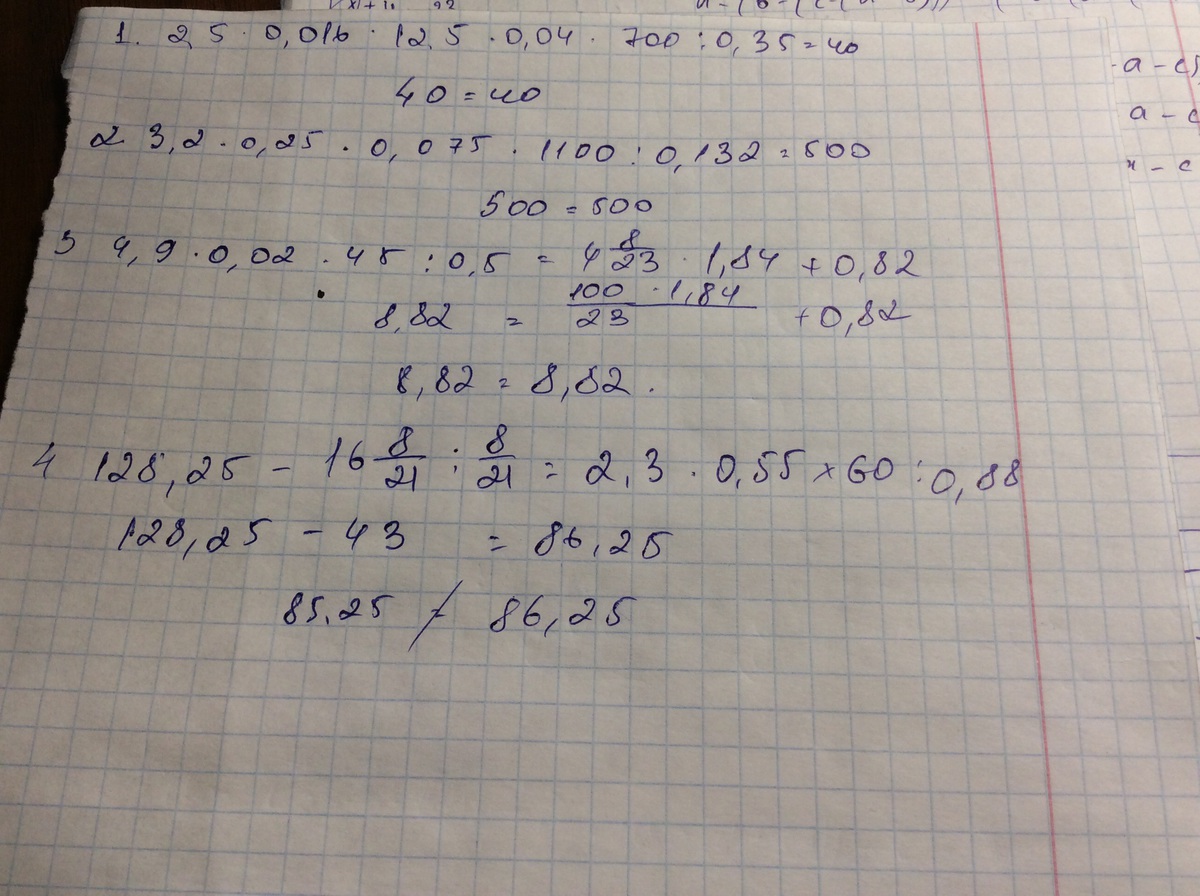 1. 2,5 · 0,016 · 12,5 · 0,04 · 700 : 0,35 = 40
40 = 40
2 3,2 · 0,25 · 0,075 · 1100 : 0,132 = 500
500 = 500
3 4,9 · 0,02 · 45 : 0,5 = 4 8/23 · 1,84 + 0,82
8,82 = 100 · 1,84 / 23 + 0,82
8,82 = 8,82.
4 128,25 - 16 8/21 : 8/21 = 2,3 · 0,55 × 60 : 0,88
128,25 - 43 = 86,25
85.25 ≠ 86,25
a - c